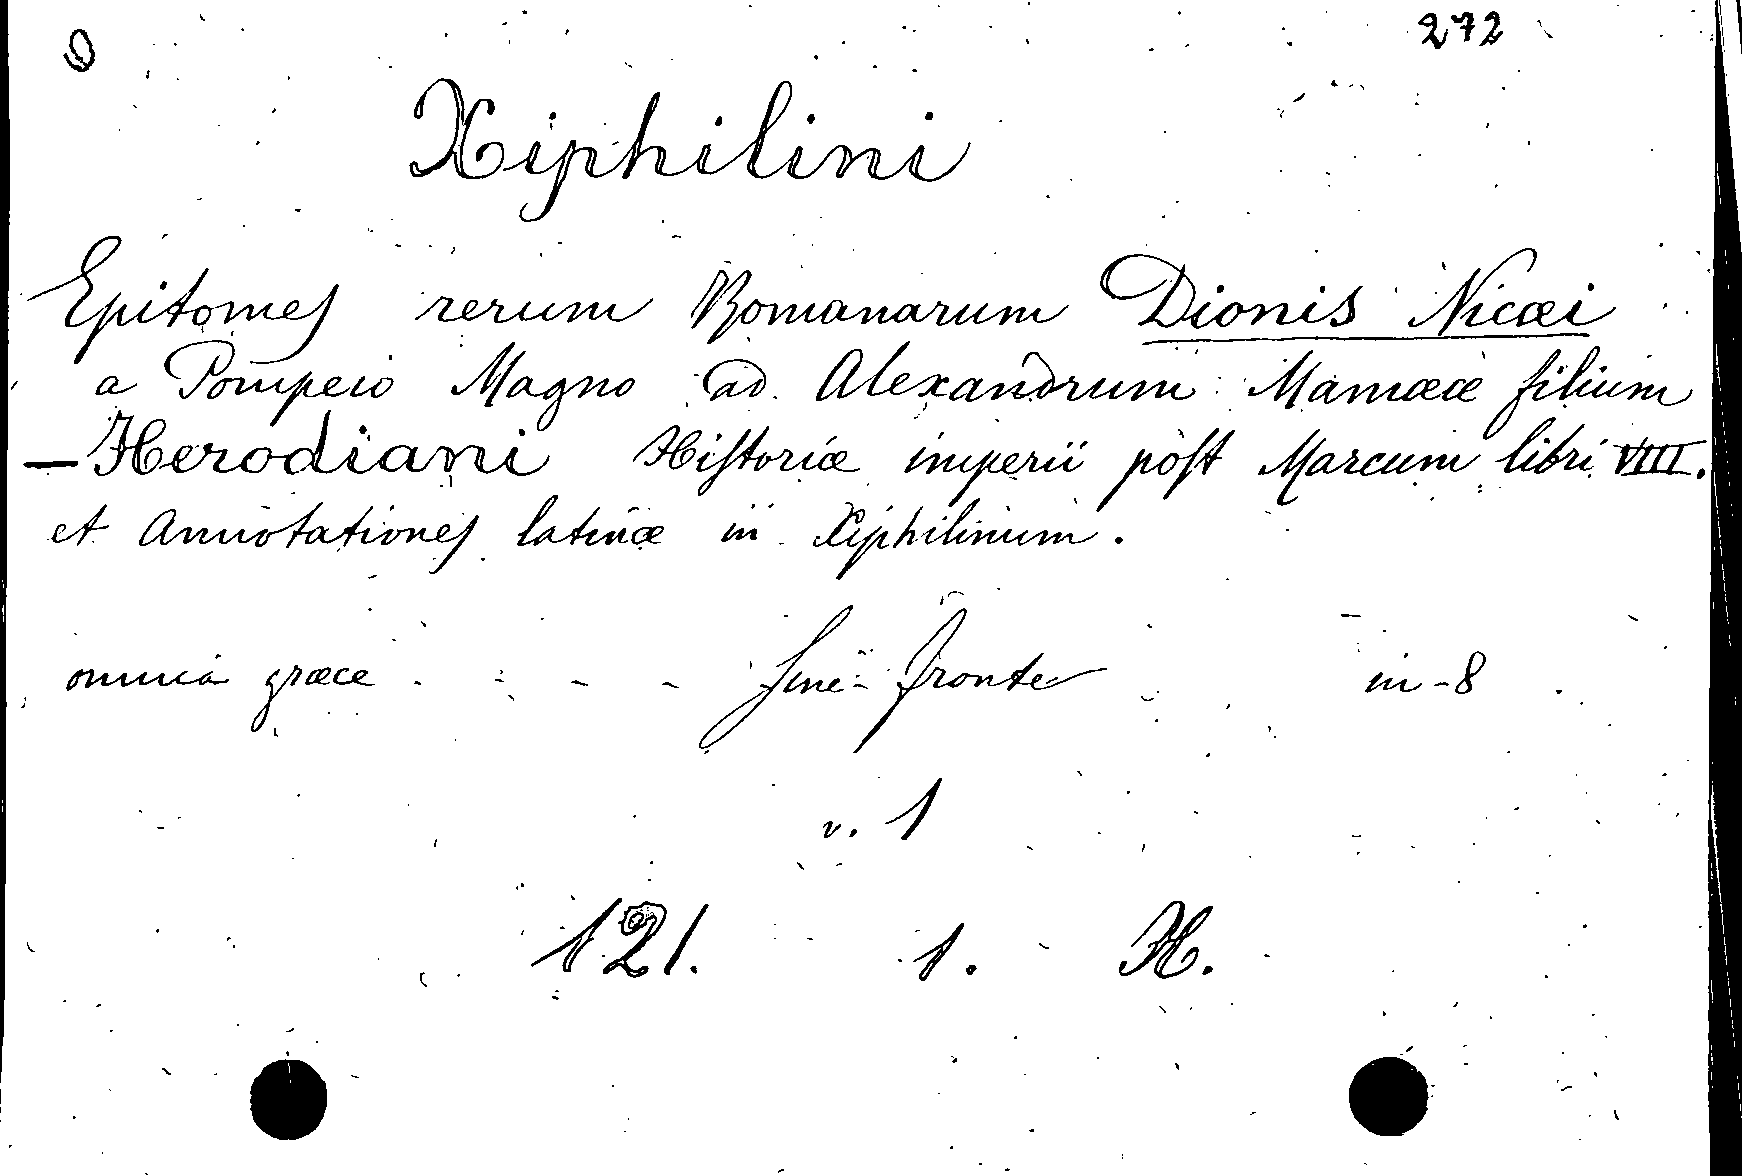 D 272
Xiphilini
Epitomes rerum Romanarum Dionis Nicæi
a Pompeio Magno ad Alexandrum Mamææ filium
— Herodiani Historiæ imperii post Marcum libri VIII.
et Annotationes latinæ in Xiphilinum.
omnia græce - - - - sine fronte in-8
v. 1
121. 1. H.